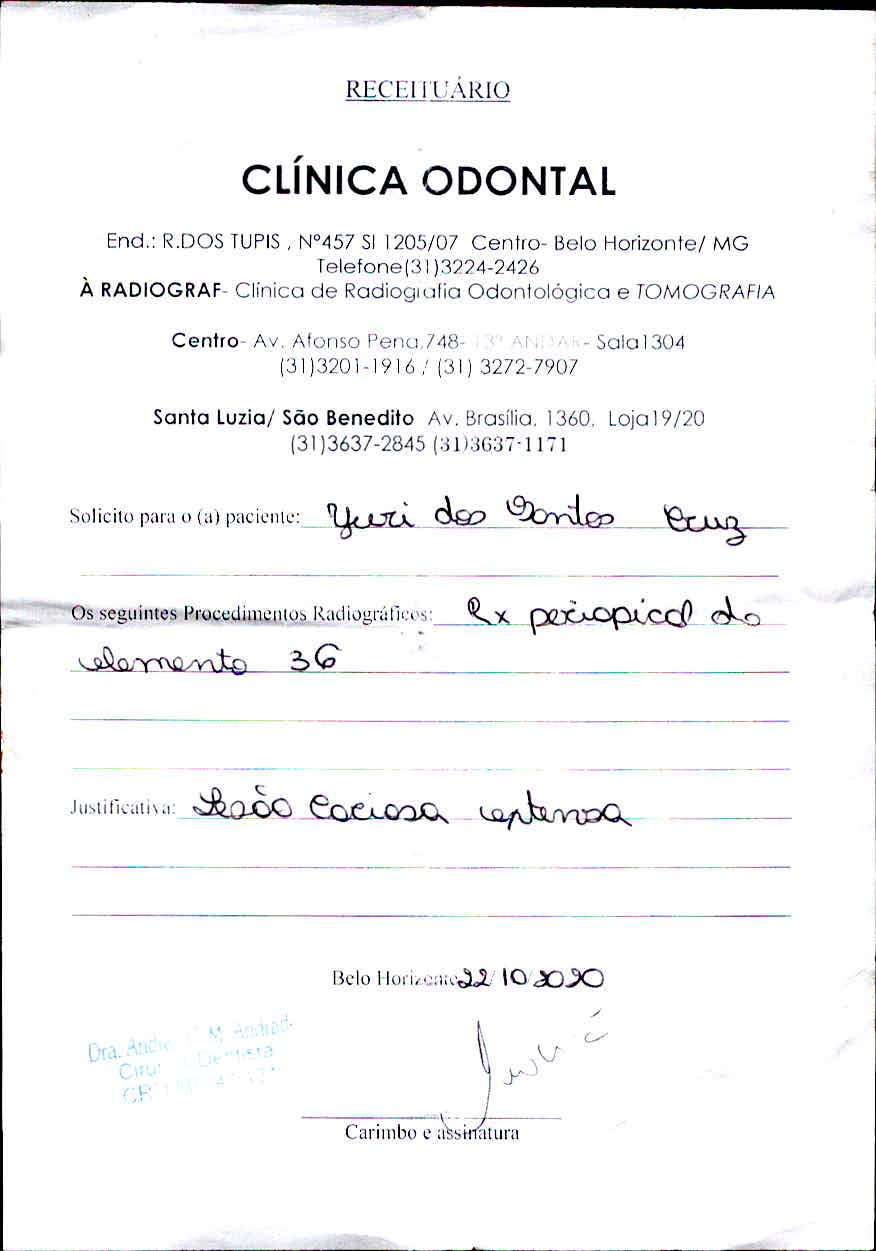 RECEITUÁRIO
CLÍNICA ODONTAL
End.: R.DOS TUPIS , Nº457 Sl 1205/07 Centro- Belo Horizonte/ MG
Telefone(31)3224-2426
À RADIOGRAF- Clínica de Radiografia Odontológica e TOMOGRAFIA
Centro- Av. Afonso Pena,748- 13º ANDAR- Sala1304
(31)3201-1916 / (31) 3272-7907
Santa Luzia/ São Benedito Av. Brasília, 1360, Loja19/20
(31)3637-2845 (31)3637-1171
Solicito para o (a) paciente: Yuri dos Santos Cruz
Os seguintes Procedimentos Radiográficos: Rx periapical do
elemento 36
Justificativa: Lesão Cariosa extensa
Belo Horizonte 22/10/2020
Dra. M. Andrad
Dentista
Carimbo e assinatura